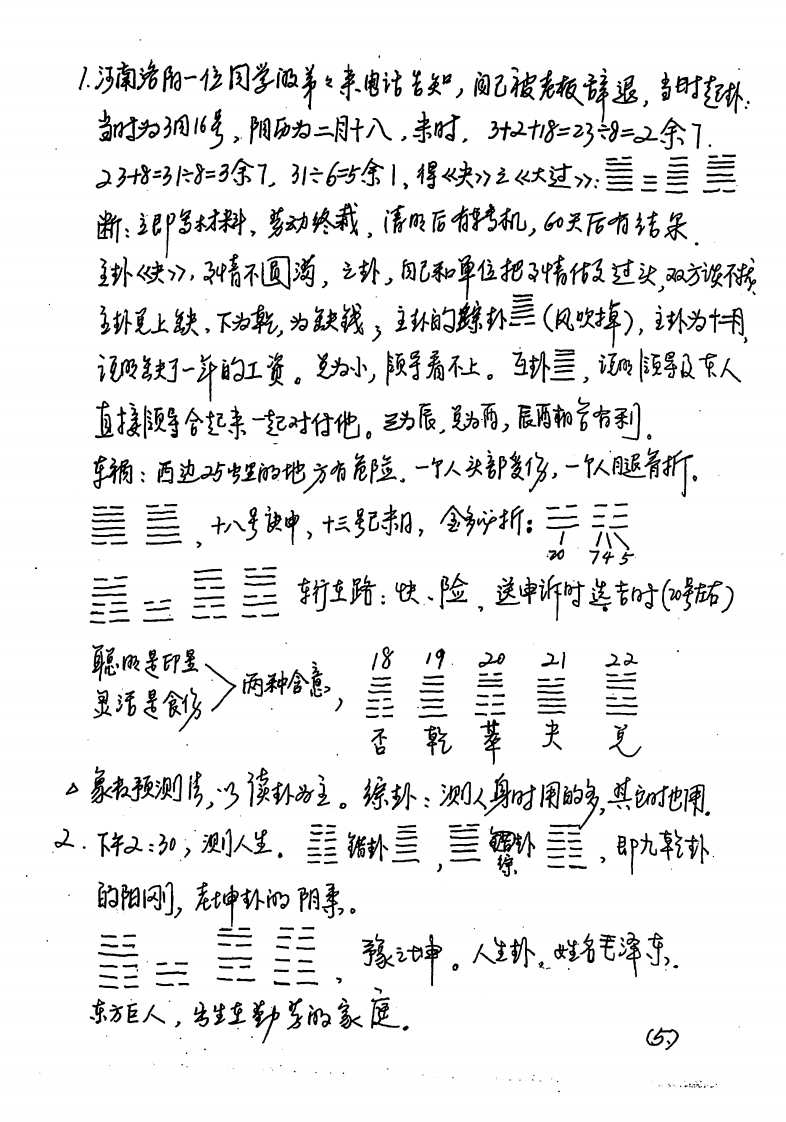 1.河南洛阳一位同学的弟々来电话告知,自己被老板辞退,当时起卦:
当时为3月16号,阴历为二月十八,未时,3+2+18=23÷8=2余7.
23+8=31÷8=3余7,31÷6=5余1,得《夬》之《大过》:
断:立即写材料、劳动终裁,清明后有转机,60天后有结果.
主卦《夬》,事情不圆满,之卦,自己和单位把事情做及过头,双方谈不拢
主卦兑上缺、下为乾,为缺钱;主卦的综卦(风吹掉),主卦为十二月,
说明缺了一年的工资。兑为小,领导看不上。互卦,说明领导及夫人
直接领导合起来一起对付他。三为辰,兑为酉,辰酉相合有利.
车祸:西边25公里的地方有危险.一个人头部受伤,一个人腿骨折.
,十八号庚申,十三号己未日,金多必折:
20 7 4 5
车行在路:快、险、送申诉时选吉时(20号左右)
聪明是印星
灵活是食伤 两种含意,
18 19 20 21 22
否 乾 萃 夬 兑
△象数预测法,以读卦为主。综卦:测人身时用的多,其它时也用.
2.下午2:30,测人生。错卦,错综卦,即九乾卦
的阳刚,老坤卦的阴柔。
,豫之坤。人生卦.姓名毛泽东.
东方巨人,出生在勤劳的家庭.
(5)